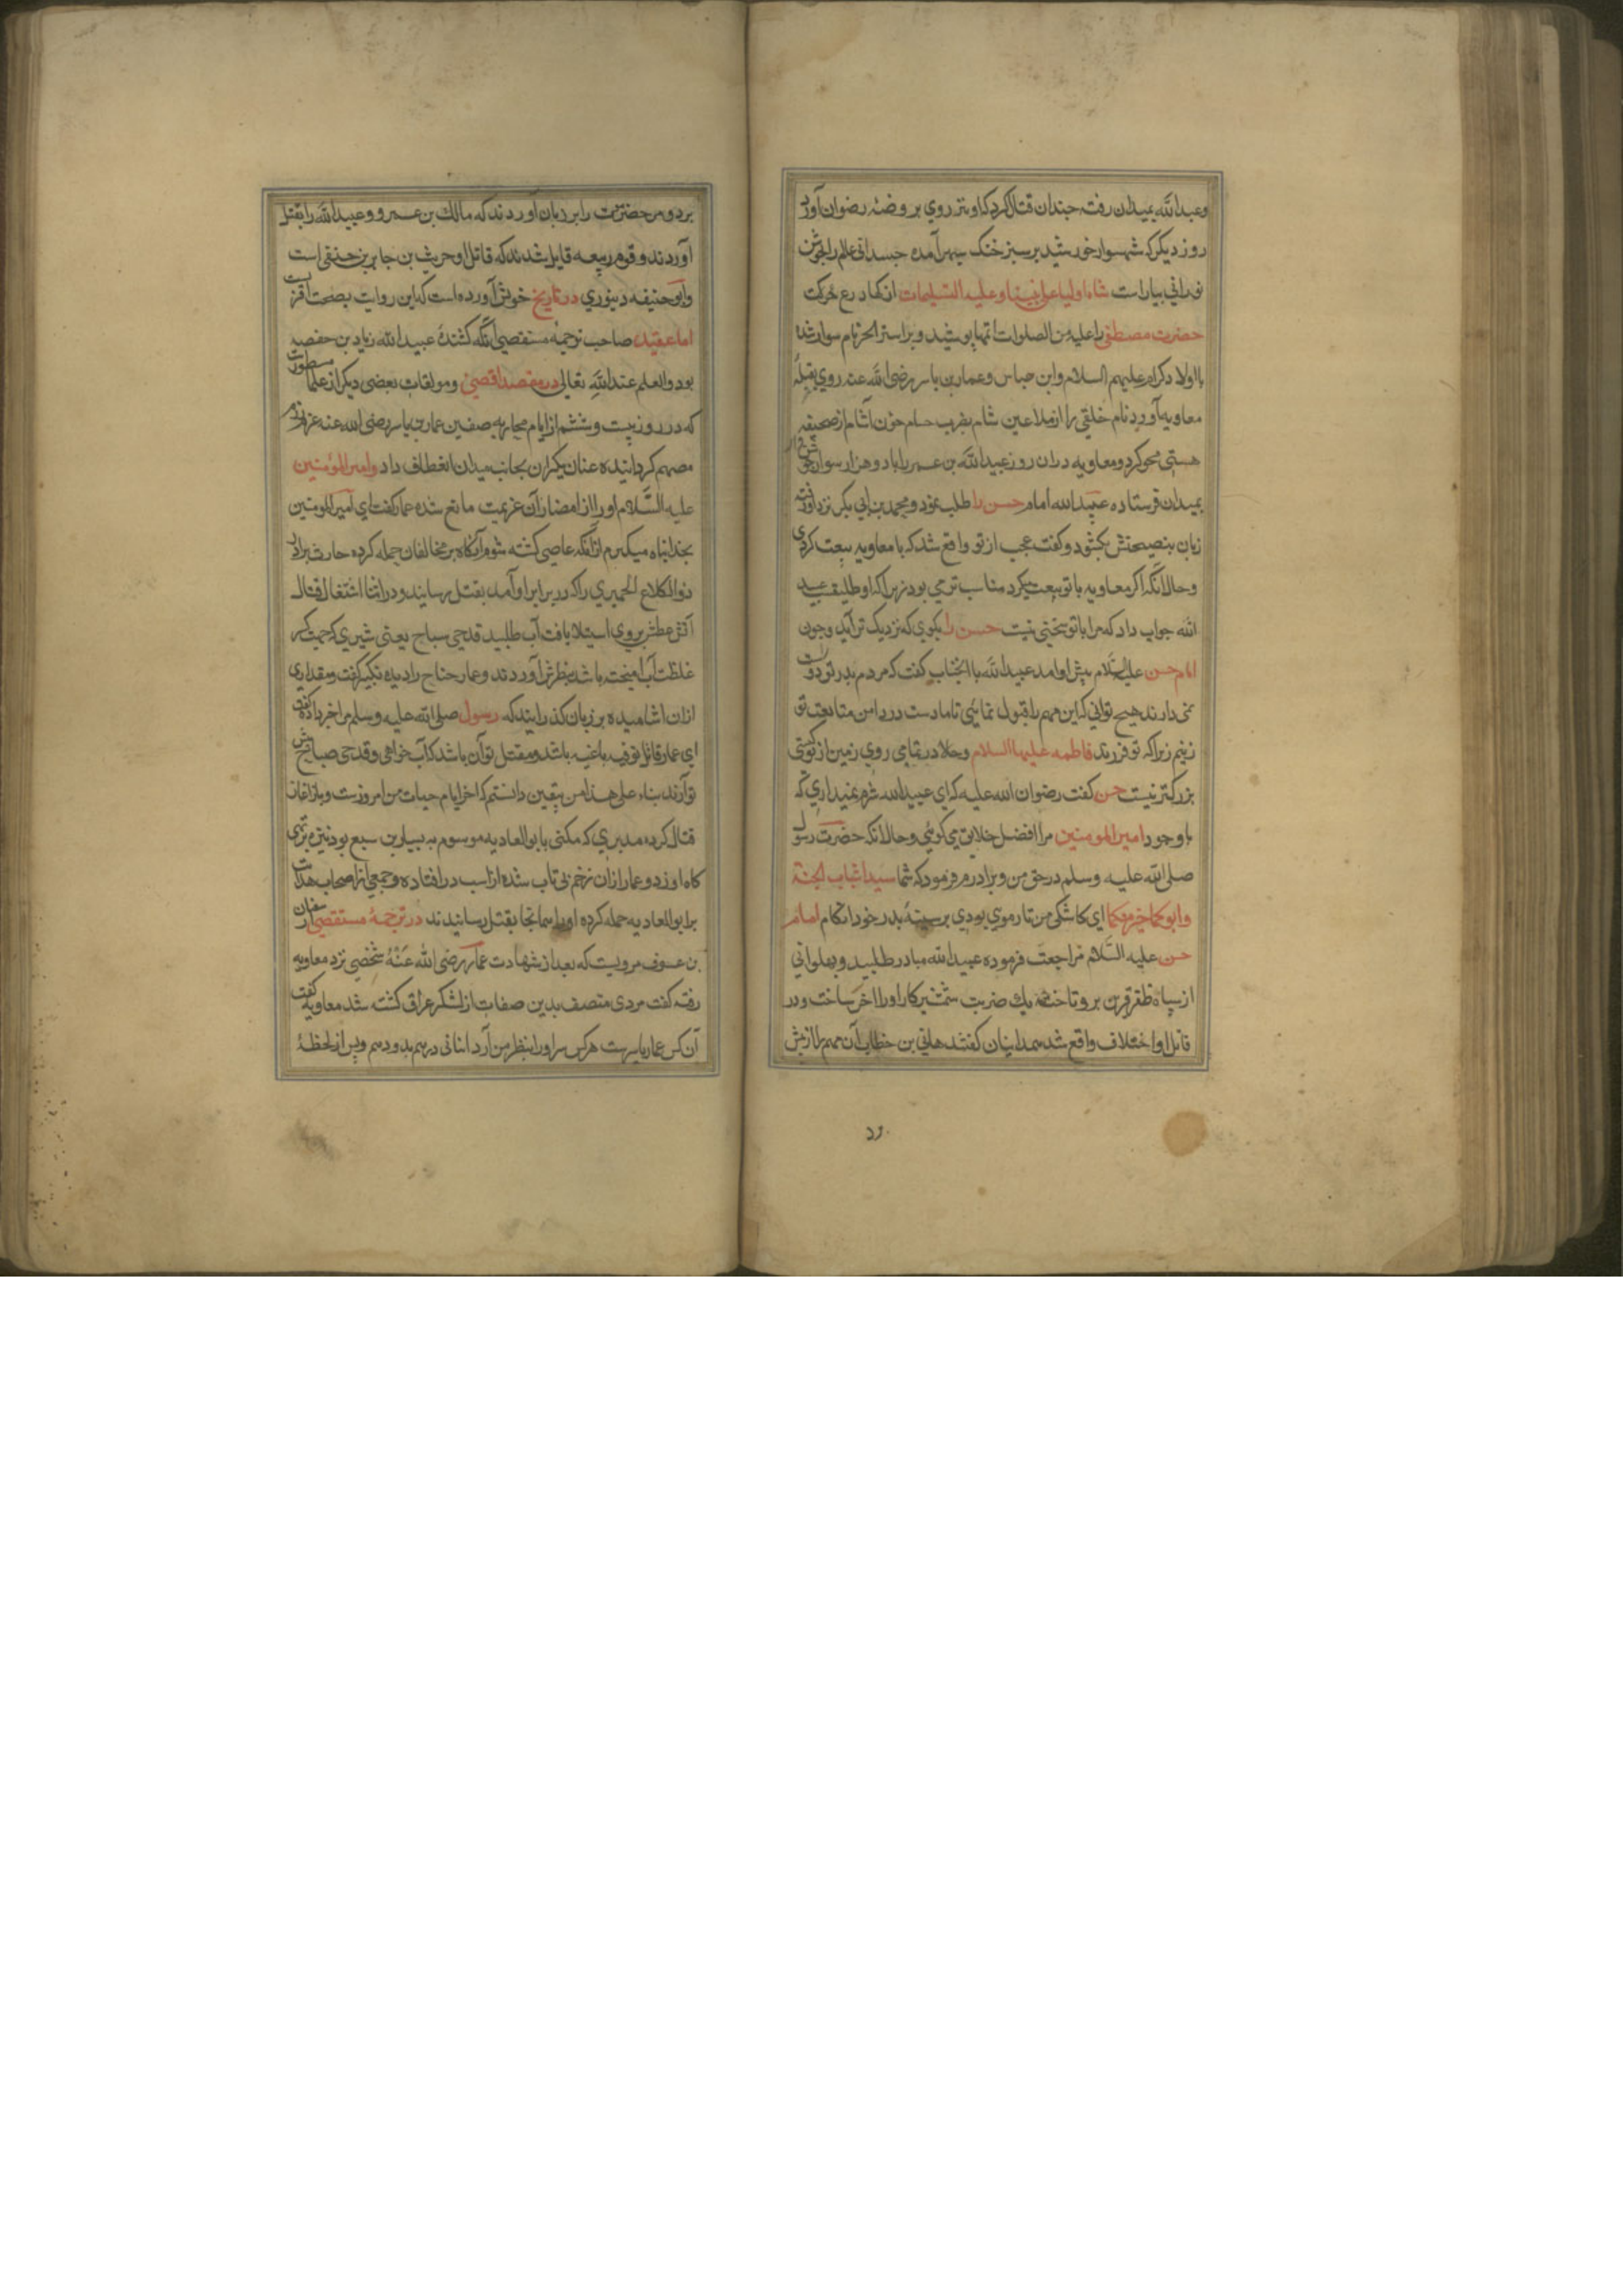 وعبدالله بمیدان رفته چندان قتال کرد که او نیز روی بروضهٔ رضوان آورد
روز دیکر که شهسوار خورشید بر سبز خنک سپهر آمده جسدانی عالم را بجوشن
نورانی بیاراست شاه اولیا علی نبینا و علیه التسلیمات از کهاد رع حرکت
حضرت مصطفی را علیه من الصلوات اتمها بپوشید و براستر الحرنام سوار شده
با اولاد کرام علیهم السلام وابن عباس وعمار بن یاسر رضی الله عنه روی بقبلهٔ
معاویه آورد نام خلقی را از ملاعین شام بضرب حسام خون آشام از صحیفه
هستی محو کرد و معاویه دران روز عبیدالله بن عمر را با دو هزار سوار
بمیدان فرستاده عبیدالله امام حسن را طلب نمود و محمد بن ابی بکر نزد او رفته
زبان بنصیحتش بکشود و کفت عجب از تو واقع شد که با معاویه بیعت کردی
وحال انکه اکر معاویه با تو بیعت میکرد مناسب تر می بود زیرا که او طلیقست عبید
الله جواب داد که مرا با تو سخنی نیست حسن را بکوی که نزدیک تر آید وچون
امام حسن علیه السلام پیش او امد عبیدالله با انجناب کفت که مردم پدر تو دوست
نمی دارند هیچ توانی که این مهم را قبول نمائی تا ما دست در دامن متابعت تو
زنیم زیرا که تو فرزند فاطمه علیها السلام وحلا در تمامی روی زمین از تو کسی
بزرکتر نیست حسن کفت رضوان الله علیه که ای عبیدالله شرم نمیداری که
با وجود امیر المومنین مرا افضل خلایق می کوئی وحال انکه حضرت رسول
صلی الله علیه وسلم در حق من وبرادرم فرمود که شما سیدا شباب الجنة
وابوکما خیر منکما ای کاشکی من تار موئی بودی بر سینهٔ پدر خود انکاه امام
حسن علیه السلام مراجعت فرموده عبیدالله مبادر طلبید و پهلوانی
از سپاه ظفر قرین برو تاخته بیک ضربت شمشیر کار او را اخر ساخت ودر
قاتل او اختلاف واقع شد همدانیان کفتند هانی بن خطاب آن مهم را از پیش
ود
برد و مرحضرمت را بر زبان آوردند که مالک بن عمرو وعبیدالله را بقتل
آوردند و قوم ربیعه قایل شدند که قاتل او حریث بن جابر بن حنفی است
وابو حنیفه دینوری در تاریخ خویش آورده است که این روایت بصحت اقربست
اما عقیده صاحب ترجمهٔ مستقصی آنکه کشندهٔ عبیدالله زیاد بن حفصه
بود والعلم عندالله تعالی در مقصد اقصی ومولفات بعضی دیکر از علما مسطورست
که در روز بیست و ششم از ایام محاربه صفین عمار بن یاسر رضی الله عنه عزم رزم
مصمم کردانیده عنان یکران بجانب میدان انعطاف داد وامیر المومنین
علیه السلام او را از امضاران عزیمت مانع شده عمار کفت ای امیر المومنین
بخدا پناه میکیرم از انکه عاصی کشته شوم آنکاه بر مخالفان حمله کرده حارث برادر
ذو الکلاع الحمیری را که در برابر او آمد بقتل رسانید ودر اثنا اشتغال قتال
آتش عطش بروی استیلا یافت آب طلبید قدحی سیاح یعنی شیری که جهت کسر
غلظت آب آمیخته باشد بنظرش آوردند وعمار جناح را دیده تکبیر کفت ومقداری
ازان اشامیده بر زبان کذرانید که رسول صلی الله علیه وسلم مرا خبر داده کفت
ای عمار قاتل تو فئه باغیه باشد و مقتل تو آن باشد که آب خواهی وقدحی صباح پیش
تو آرند بناء علی هذا من بیقین دانستم که اخر ایام حیات من امروزست وباز اغاز
قتال کرده مدبری که مکنی بابو العادیه موسوم به بسیار بن سبع بود نیزه بر تهی
کاه او زد وعمار ازان زخم بی تاب شده از اسب در افتاده وجمعی از اصحاب هدایت
بر ابو العادیه حمله کرده او را همانجا بقتل رسانیدند در ترجمهٔ مستقصی از سفیان
بن عوف مرویست که بعد از شهادت عمار رضی الله عنه شخصی نزد معاویه
رفته کفت مردی متصف بدین صفات از لشکر عراق کشته شد معاویه کفت
آن کس عمار یاسرست هر کس سر او را بنظر من آرد انبانی درهم بدو دهم وپس از لحظهٔ